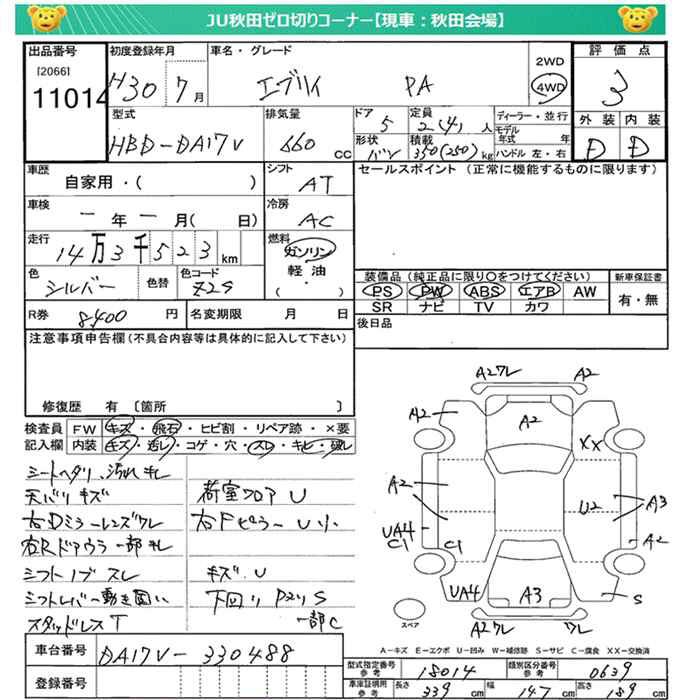 JU秋田ゼロ切りコーナー【現車：秋田会場】
出品番号
[2066]
11014
初度登録年月
H30 7 月
車名・グレード
エブリイ PA
2WD
4WD
評価点
3
外装 内装
D D
型式
HBD-DA17V
排気量
660 cc
ドア
5
形状
バン
定員
2(4) 人
積載
350(250) kg
ディーラー・並行
モデル年式 年
ハンドル 左・右
車歴
自家用・( )
シフト
AT
セールスポイント（正常に機能するものに限ります）
車検
一 年 一 月( 日)
冷房
AC
走行
14万3千523 km
燃料
ガソリン
軽油
・( )
色
シルバー
色替
色コード
Z2S
装備品（純正品に限り〇をつけてください）
PS PW ABS エアB AW
SR ナビ TV カワ
新車保証書
有・無
R券
8400 円
名変期限 月 日
後日品
注意事項申告欄(不具合内容等は具体的に記入して下さい)
修復歴 有 〔箇所 〕
検査員記入欄
FW キズ・飛石・ヒビ割・リペア跡・×要
内装 キズ・汚レ・コゲ・穴・スレ・キレ・破レ
シートヘタリ、汚れキレ
天バリキズ
右Dミラーレンズワレ
右Rドアウラ一部キレ
シフトノブスレ
シフトレバー動き固い
スタッドレスT
荷室フロアU
右FピラーU小
キズ、U
下回りPメリS
一部C
A2ワレ A2
A2 A2
XX
A2
U2 A3
UA4 C1 C1 A2
UA4 A3 S
A2ワレ ワレ
スペア
A-キズ E-エクボ U-凹み W-補修跡 S-サビ C-腐食 XX-交換済
車台番号
DA17V-330488
登録番号
型式指定番号 参考 18014
類別区分番号 参考 0639
車車証明用 参考
長さ 339 cm 幅 147 cm 高さ 189 cm